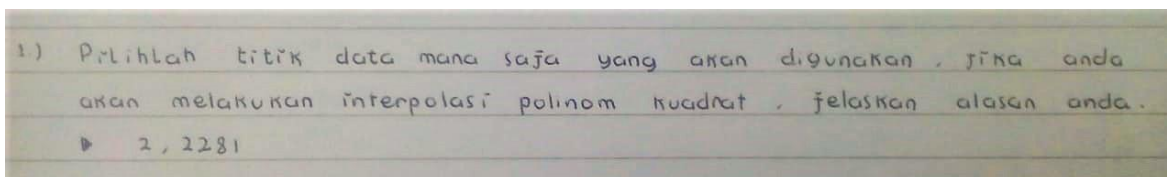 1.) Pilihlah titik data mana saja yang akan digunakan, jika anda
akan melakukan interpolasi polinom kuadrat, jelaskan alasan anda.
▷ 2, 2281